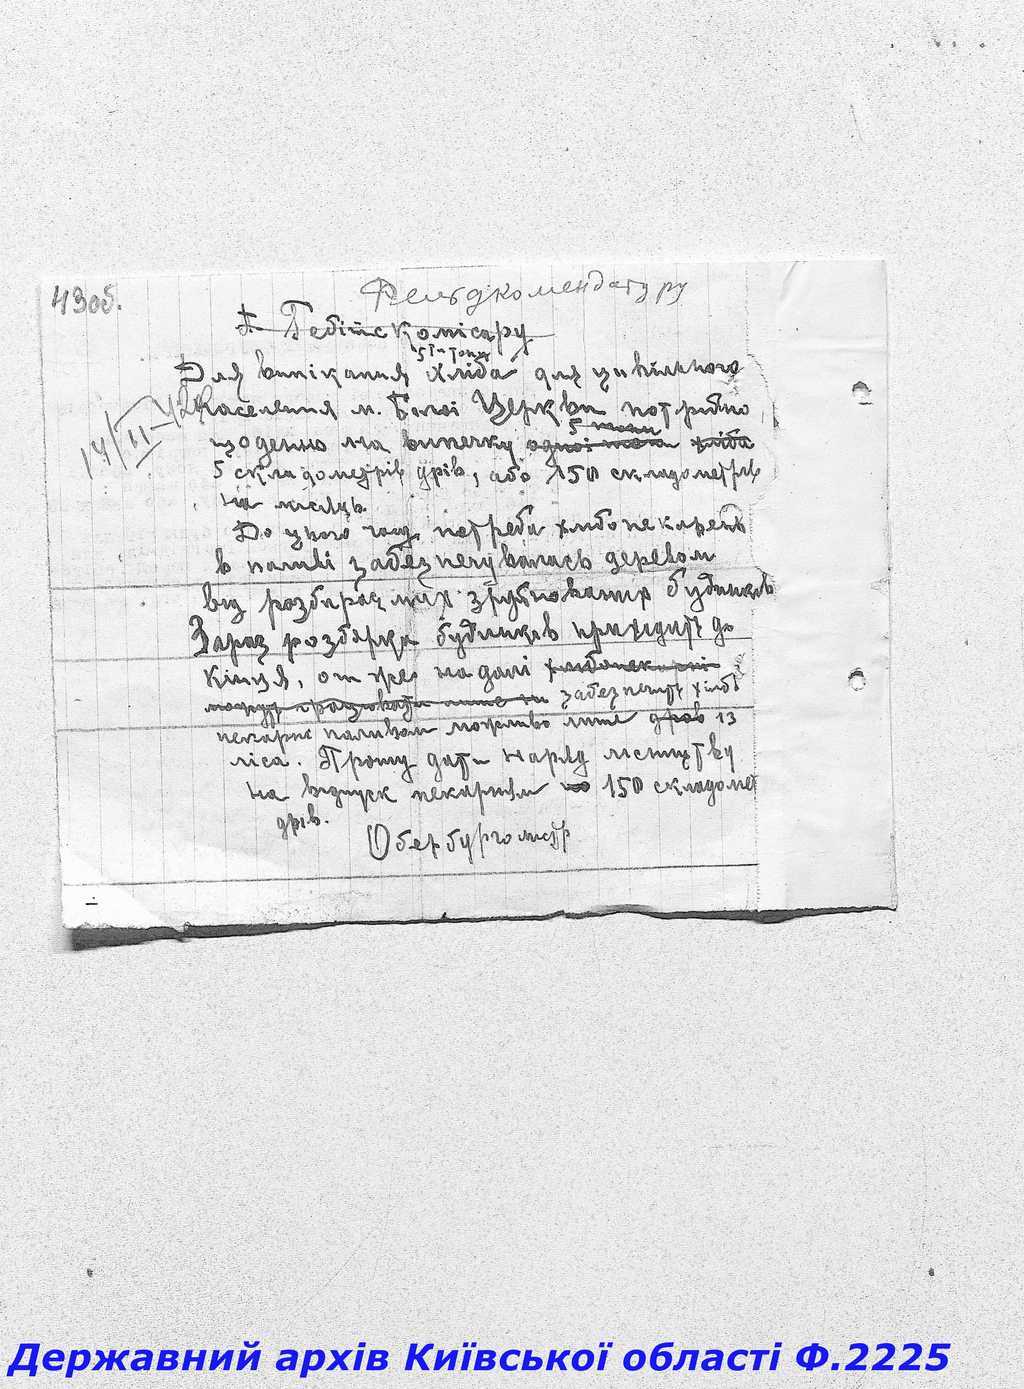 43об.
Фельдкомендатуру
Гебітскомісару
5 тонн
Для випікання хліба для цивільного
14/II-42
населення м. Білої Церкви потрібно
5 тонн
щоденно на випечку одної тони хліба
5 складометрів дрів, або 150 складометрів
на місяць.
До цього часу потреба хлібопекарень
в паливі забезпечувалась деревом
від розбираємих зруйнованих будинків
Зараз розбірка будинків приходить до
кінця, от же на далі хлібопекарні
можуть працювати лише забезпечить хлібо
пекарні паливом можливо лише дров із
ліса. Прошу дати наряд лісництву
на відпуск пекарням 150 складоме
дрів.
Обербургомістр
Державний архів Київської області Ф.2225